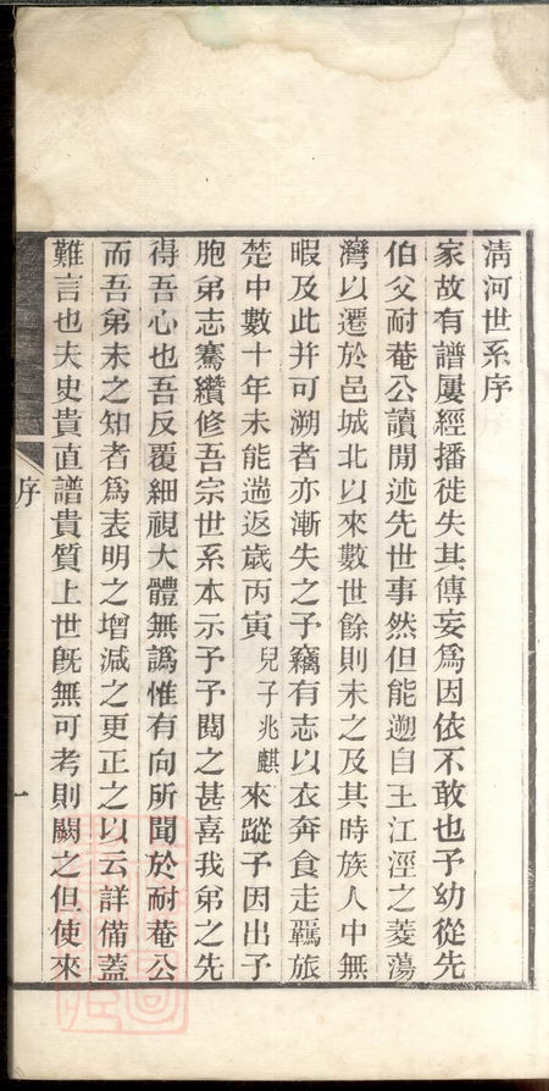 清河世系序
家故有譜屢經播徙失其傳妄爲因依不敢也予幼從先
伯父耐菴公讀閒述先世事然但能遡自王江涇之菱蕩
灣以遷於邑城北以來數世餘則未之及其時族人中無
暇及此并可溯者亦漸失之予竊有志以衣奔食走羈旅
楚中數十年未能遄返歲丙寅兒子兆麒來蹤予因出予
胞弟志騫纘修吾宗世系本示予予閱之甚喜我弟之先
得吾心也吾反覆細視大體無譌惟有向所聞於耐菴公
而吾弟未之知者爲表明之增減之更正之以云詳備蓋
難言也夫史貴直譜貴質上世旣無可考則闕之但使來
序
一